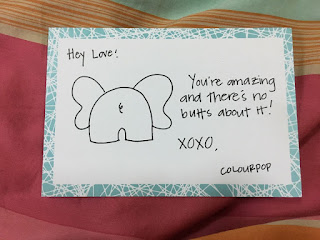 Hey Love!
You're amazing
and there's no
butts about it!
XOXO,
COLOURPOP